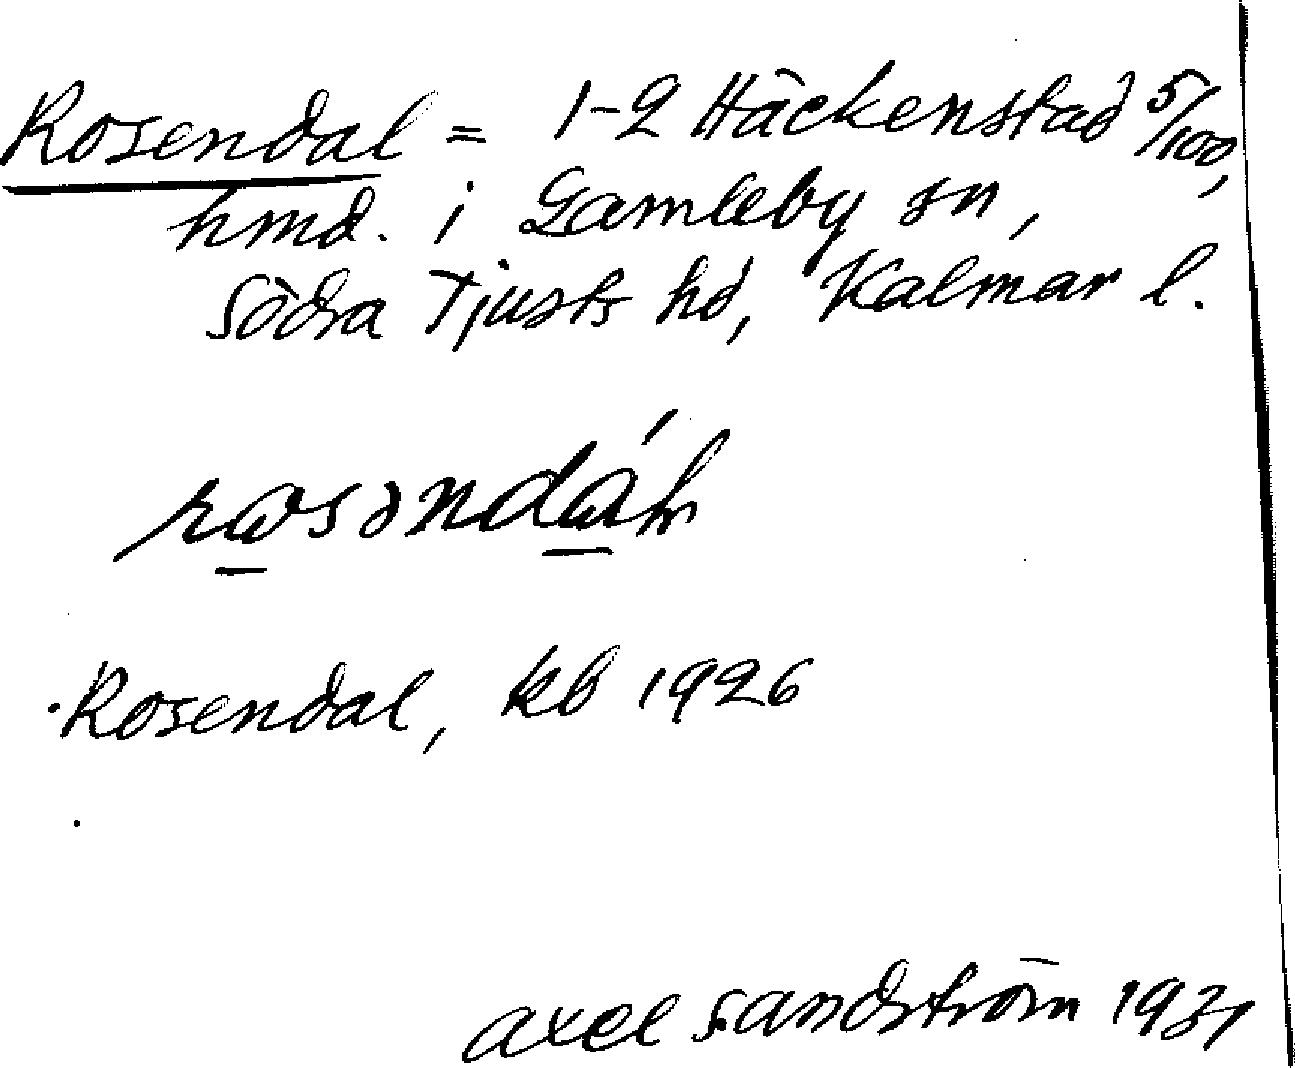 Rosendal = 1-2 Häckenstad 5/100,
hmd. i Gamleby sn,
Södra Tjusts hd, Kalmar l.
Rosendal, kb 1926
Axel Sandström 1931